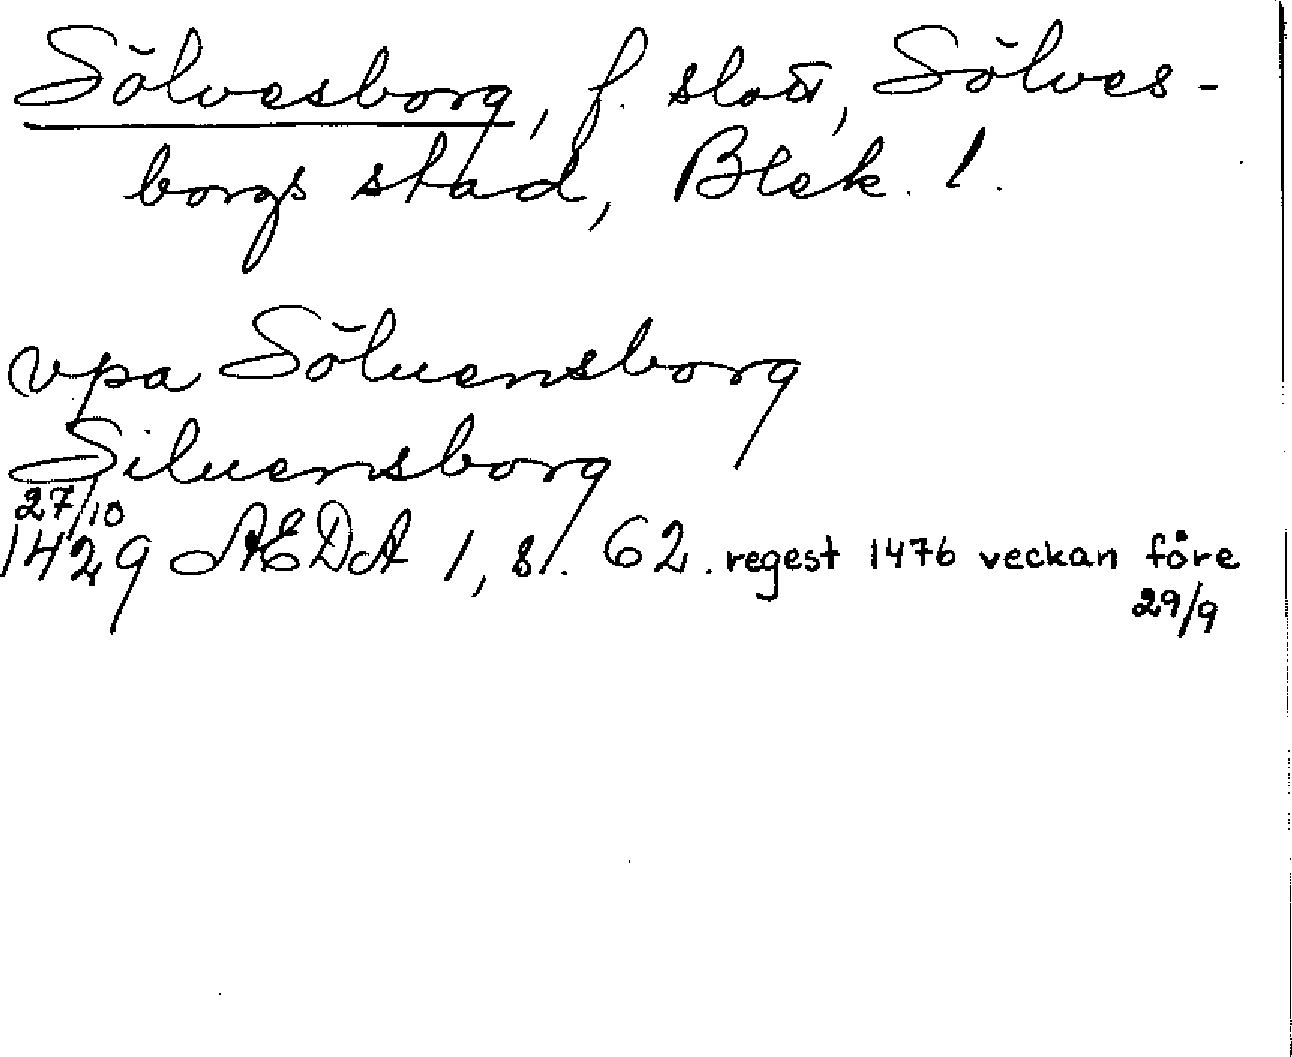 Sölvesborg, f. slott, Sölves-
borgs stad, Blek. l.
vpa Söluensborg
Siluensborg
27/10
1429 ÆDA 1, s. 62. regest 1476 veckan före
29/9